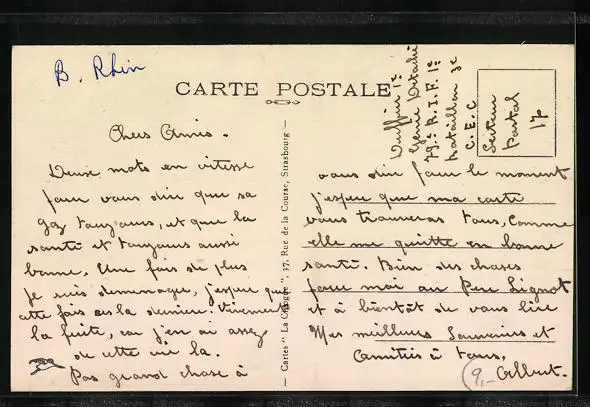 B. Rhin
CARTE POSTALE
Chers Amis.
Deux mots en vitesse
pour vous dire que sa
gaz toujours, et que la
santé et toujours aussi
bonne. Une fois de plus
je suis demenage, j'espere que
cette fois as la dernier. Vivement
la fuite, car j'en ai assez
de cette vie la.
Pas grand chose à
Cartes " La Cigogne ", 37, Rue de la Course, Strasbourg
1e
Genie
79e R. I. F. 1e
bataillon
C. E. C
Secteur
Postal
17
vous dire pour le moment
j'espere que ma carte
vous trouveras tous, comme
elle me quitte en bonne
santé. Bien des choses
pour moi au Pere Lignot
et à bientôt de vous lire
Mes meilleurs Souvenirs et
Amitiés à tous,
Albert.
9,-